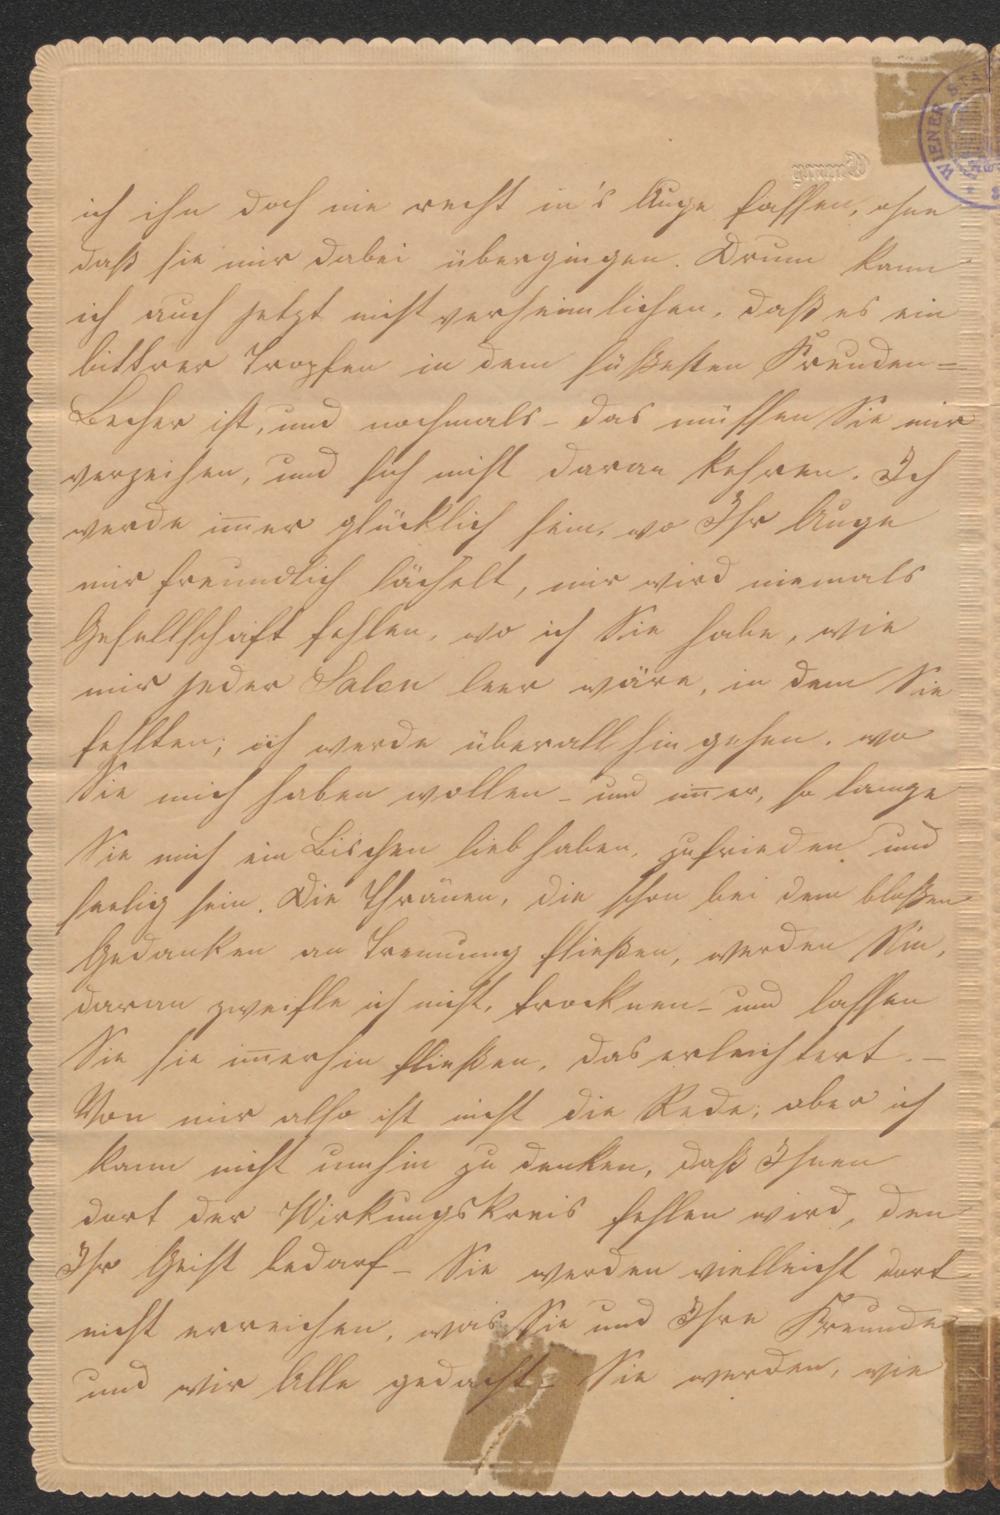 ich ihn doch nie recht in's Auge fassen, ohne
daß sie mir dabei übergingen. Drum kann
ich auch jetzt nicht verheimlichen, daß es ein
bittrer Tropfen in dem süßesten Freuden=
Becher ist, und nochmals – das müssen Sie mir
verzeihen, und sich nicht daran kehren. Ich
werde im̄er glücklich sein, wo Ihr Auge
mir freundlich lächelt, mir wird niemals
Gesellschaft fehlen, wo ich Sie habe, wie
mir jeder Salon leer wäre, in dem Sie
fehlten; ich werde überall hin gehen, wo
Sie mich haben wollen – und im̄er, so lange
Sie mich ein Bischen lieb haben, zufrieden und
seelig sein. Die Thränen, die schon bei dem bloßen
Gedanken an Trennung fließen, werden Sie,
daran zweifle ich nicht, trocknen – und lassen
Sie sie im̄erhin fließen, das erleichtert. –
Von mir also ist nicht die Rede; aber ich
kann nicht umhin zu denken, daß Ihnen
dort der Wirkungskreis fehlen wird, den
Ihr Geist bedarf – Sie werden vielleicht dort
nicht erreichen, was Sie und Ihre Freunde
und wir Alle gedacht – Sie werden, wie
WIENER